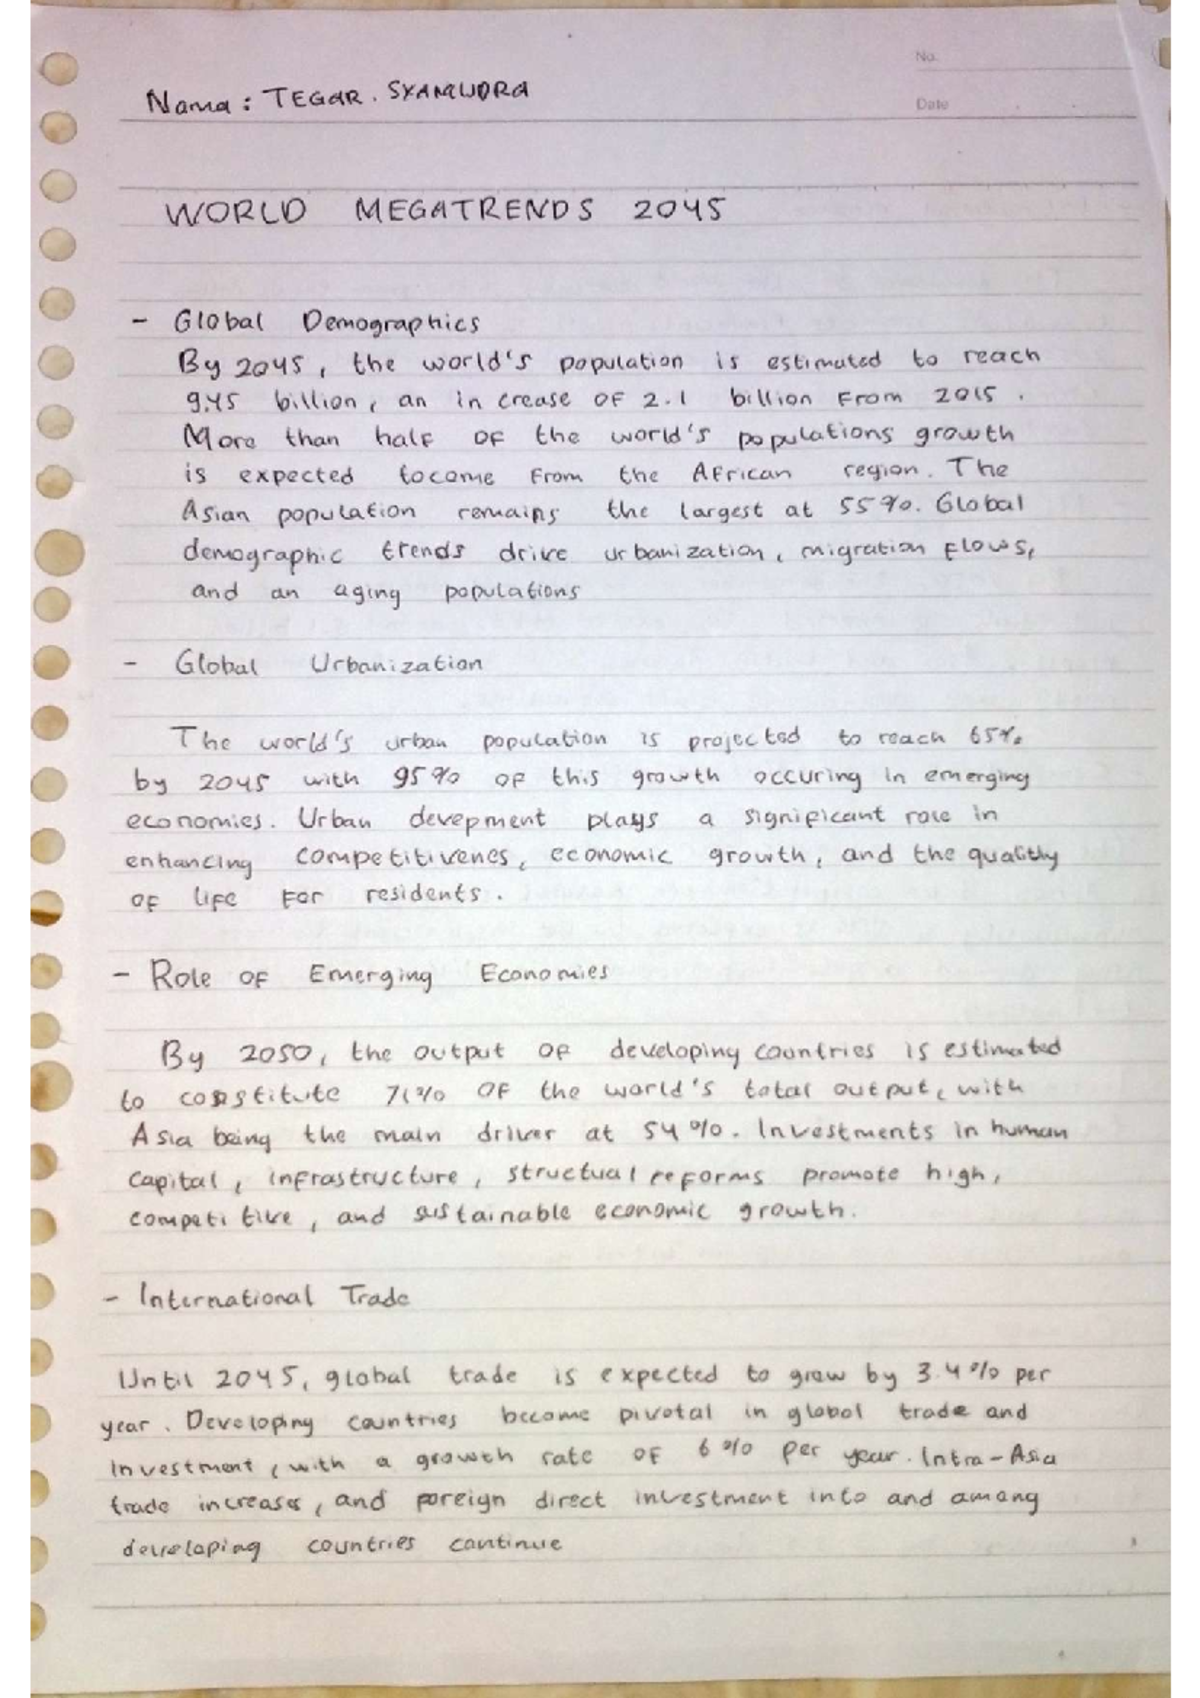 No.
Nama : TEGAR. SYAMUDRA
Date
WORLD MEGATRENDS 2045
- Global Demographics
By 2045, the world's population is estimated to reach
9.45 billion, an in crease OF 2.1 billion From 2015.
More than half OF the world's populations growth
is expected tocome From the AFrican region. The
Asian population remains the largest at 55%. Global
demographic trends drive urbanization, migration Flows,
and an aging populations
- Global Urbanization
The world's urban population is projected to reach 65%
by 2045 with 95% OF this growth occuring in emerging
economies. Urban devepment plays a significant role in
enhancing competitivenes, economic growth, and the qualithy
OF liFe For residents.
- Role OF Emerging Economies
By 2050, the output OF developing countries is estimated
to constitute 71% OF the world's total output, with
Asia being the main driver at 54%. Investments in human
capital, inFrastructure, structual reForms promote high,
competitive, and sustainable economic growth.
- International Trade
Until 2045, global trade is expected to grow by 3.4% per
year. Developing countries become pivotal in global trade and
investment, with a growth rate OF 6% per year. Intra-Asia
trade increases, and foreign direct investment into and among
developing countries continue